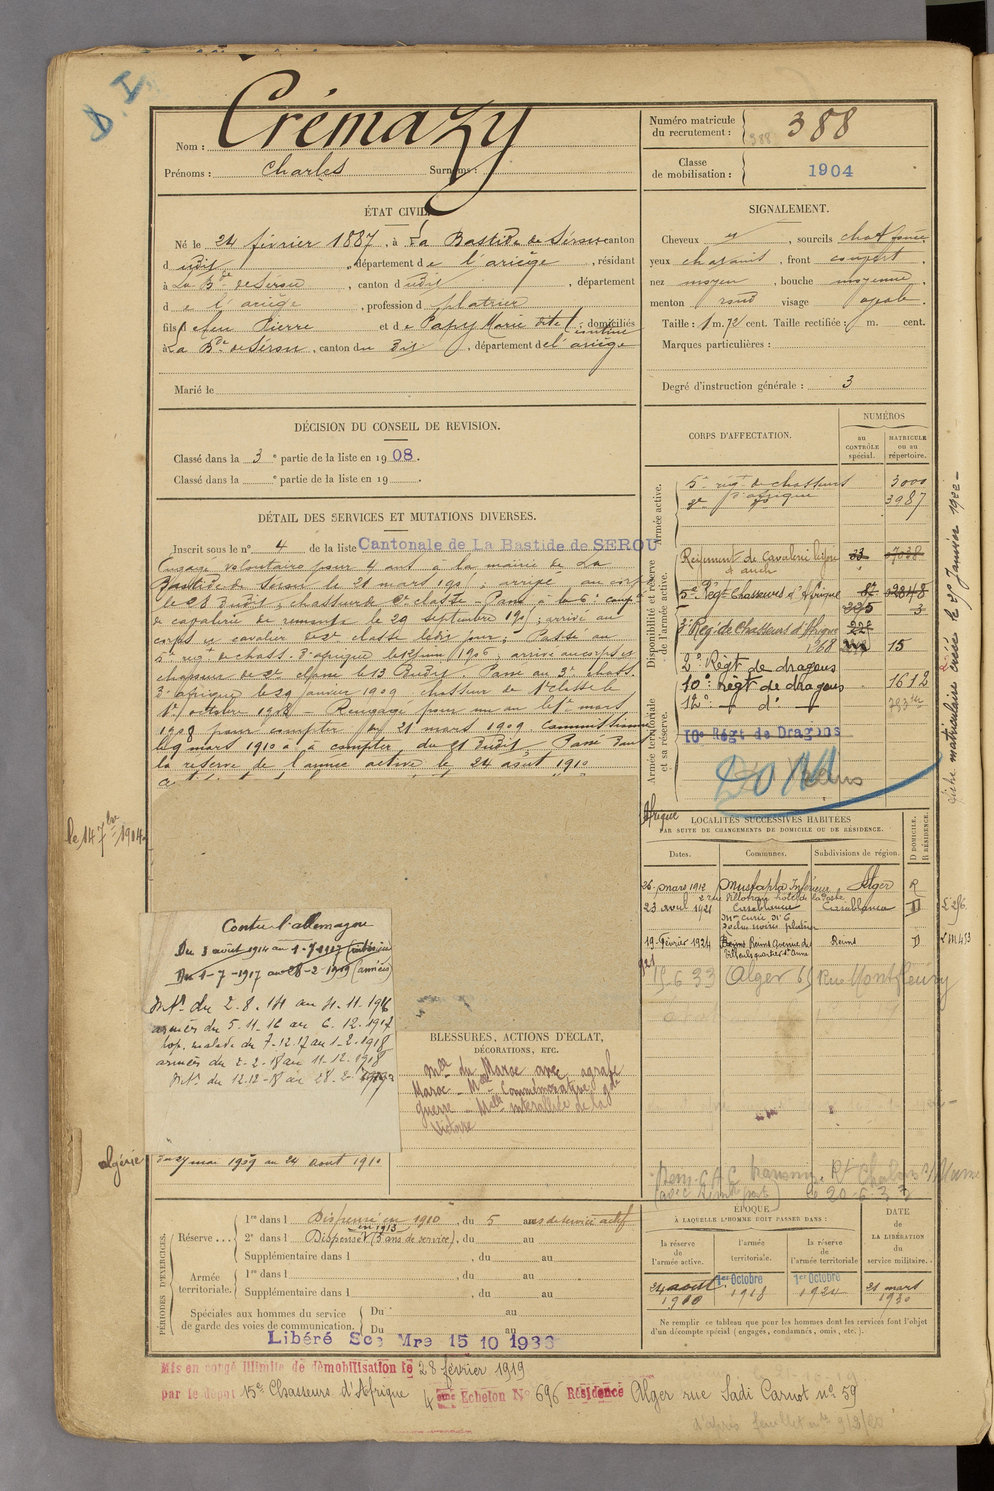 D. I.
Nom : Crémazy
Prénoms : Charles Surnoms :
Numéro matricule du recrutement : 388
388
Classe de mobilisation : 1904
ÉTAT CIVIL.
Né le 24 février 1887, à La Bastide de Sérou canton
d udit, département de l'ariège, résidant
à La B.de de Sérou, canton d udit, département
de l'ariège, profession d plâtrier
fils de feu Pierre et de Papy Marie dite, domiciliés
à La B.de de Sérou, canton du dit, département de l'ariège
Marié le
SIGNALEMENT.
Cheveux, sourcils chat. foncé
yeux châtains, front couvert,
nez moyen, bouche moyenne,
menton rond visage ovale.
Taille : 1 m. 72 cent. Taille rectifiée : m. cent.
Marques particulières :
Degré d'instruction générale : 3
DÉCISION DU CONSEIL DE REVISION.
Classé dans la 3e partie de la liste en 1908.
Classé dans la e partie de la liste en 19 .
DÉTAIL DES SERVICES ET MUTATIONS DIVERSES.
Inscrit sous le n° 4 de la liste Cantonale de La Bastide de SEROU
Engagé volontaire pour 4 ans à la mairie de La
Bastide de Sérou le 21 mars 1905, arrivé au corps
le 28 dudit, chasseur de 2e classe - Passé à la 6e compie
de cavalerie de remonte le 29 septembre 1905; arrivé au
corps et cavalier de 2e classe ledit jour; Passé au
5e régt de chass. d'afrique le 12 juin 1906; arrivé au corps et
chasseur de 2e classe le 13 dudit. Passé au 3e chass.
d'afrique le 29 janvier 1909 chasseur de 1e classe le
1er octobre 1908 - Rengagé pour un an le 1er mars
1908 pour compter du 21 mars 1909 Commissionné
le 9 mars 1910 à compter du 21 dudit, Passé dans
la réserve de l'armée active le 24 août 1910
le 14 7bre 1904
CORPS D'AFFECTATION.
NUMÉROS
au CONTRÔLE spécial.
MATRICULE ou au répertoire.
Armée active.
5e régt de chasseurs d'afrique 3000
3e d° 3987
Disponibilité et réserve de l'armée active.
Régiment de Cavalerie légère 33
à auch
5e Régt Chasseurs d'Afrique
5e Rég. de Chasseurs d'Afrique
368 15
2e Régt de dragons
10e Régt de dragons 1612
12e - d° -
Armée territoriale et sa réserve.
10e Régt de Dragons
DOM
Fiche matriculaire créée le Janvier 1922 -
LOCALITÉS SUCCESSIVES HABITÉES
PAR SUITE DE CHANGEMENTS DE DOMICILE OU DE RÉSIDENCE.
Dates. Communes. Subdivisions de région. D DOMICILE. R RÉSIDENCE.
26 mars 1912 Mustapha Inférieur Alger R
23 avril 1921 Casablanca Casablanca D
19 Février 1924 Reims Avenue des Reims D
15-6 33 Alger 65 Rue Montfleury
Contre l'allemagne
Du 3 août 1914 au 1-7-1917 (intérieur)
Du 1-7-1917 au 28-2-1919 (armées)
Int. du 2.8.14 au 4.11.1916
armées du 5-11-16 au 6.12.1917
hop. malade du 7-12-17 au 1-2-1918
armées du 2-2-18 au 11-12-1918
Int. du 12.12-18 au 28.2.1919
algérie du 27 mai 1909 au 24 août 1910
BLESSURES, ACTIONS D'ÉCLAT,
DÉCORATIONS, ETC.
Mlle du Maroc avec agrafe
Maroc - Mlle Commémorative gde
guerre - Mlle interalliée de la
Victoire
PÉRIODES D'EXERCICES.
Réserve.... 1re dans l Dispensé en 1910, du 5 ans de service actif
en 1913
2e dans l Dispensé (5 ans de service), du au
Supplémentaire dans l , du au
Armée territoriale. 1re dans l , du au
Supplémentaire dans l , du au
Spéciales aux hommes du service de garde des voies de communication. Du au
Du au
Libéré Sce Mre 15 10 1936
ÉPOQUE
À LAQUELLE L'HOMME DOIT PASSER DANS :
la réserve de l'armée active. l'armée territoriale. la réserve de l'armée territoriale
DATE de LA LIBÉRATION du service militaire.
24 août 1910 1er Octobre 1918 1er Octobre 1924 21 mars 1930
Ne remplir ce tableau que pour les hommes dont les services font l'objet
d'un décompte spécial (engagés, condamnés, omis, etc.).
Mis en congé illimité de démobilisation le 28 février 1919
par le dépôt 15e Chasseurs d'Afrique 4ème Echelon N° 696 Résidence Alger rue Sadi Carnot n° 59